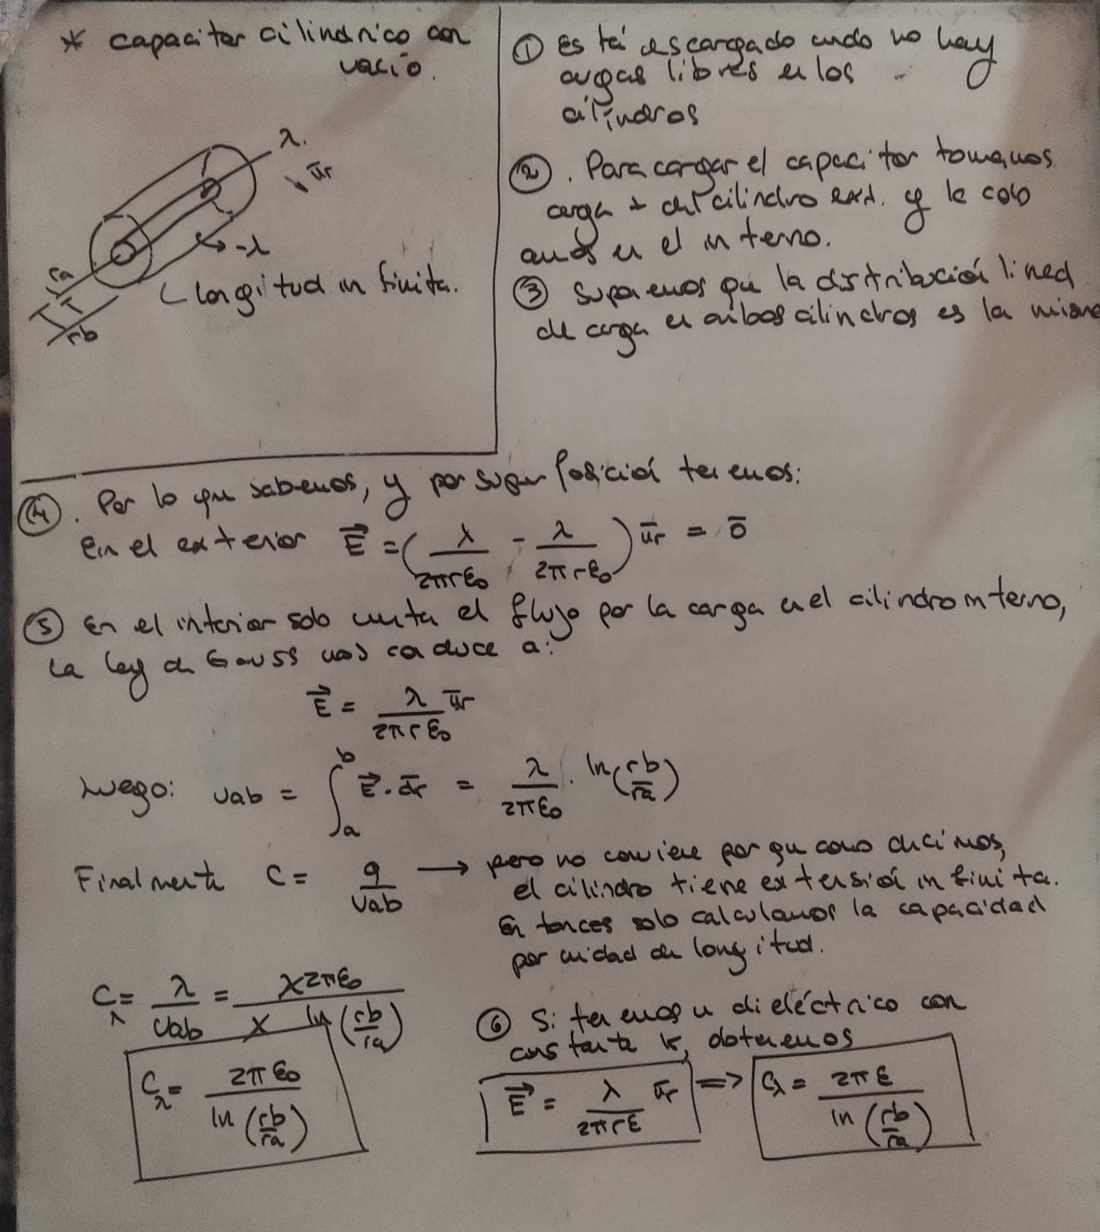 * capacitor cilindrico con
vacío.
λ.
ūr
-λ
ra
rb
Longitud infinita.
① Está descargado cuando no hay
cargas libres en los
cilindros
②. Para cargar el capacitor tomamos
carga + del cilindro ext. y le colo
camos en el interno.
③ Suponemos que la distribución lineal
de carga en ambos cilindros es la misma
④. Por lo que sabemos, y por superposición tenemos:
En el exterior E⃗ = (λ/2πrε₀ - λ/2πrε₀) ūr = 0̄
⑤ En el interior solo cuenta el flujo por la carga en el cilindro interno,
la ley de Gauss nos conduce a:
E⃗ = λ/2πrε₀ ūr
Luego: Vab = ∫ₐᵇ E⃗ · d̄r = λ/2πε₀ · ln(rb/ra)
Finalmente C = q/Vab → pero no conviene porque como decimos,
el cilindro tiene extensión infinita.
Entonces solo calculamos la capacidad
por unidad de longitud.
C_λ = λ/Vab = λ2πε₀/λ ln(rb/ra)
C_λ = 2πε₀/ln(rb/ra)
⑥ Si tenemos un dieléctrico con
constante k, obtenemos
E⃗ = λ/2πrε ūr => C_λ = 2πε/ln(rb/ra)